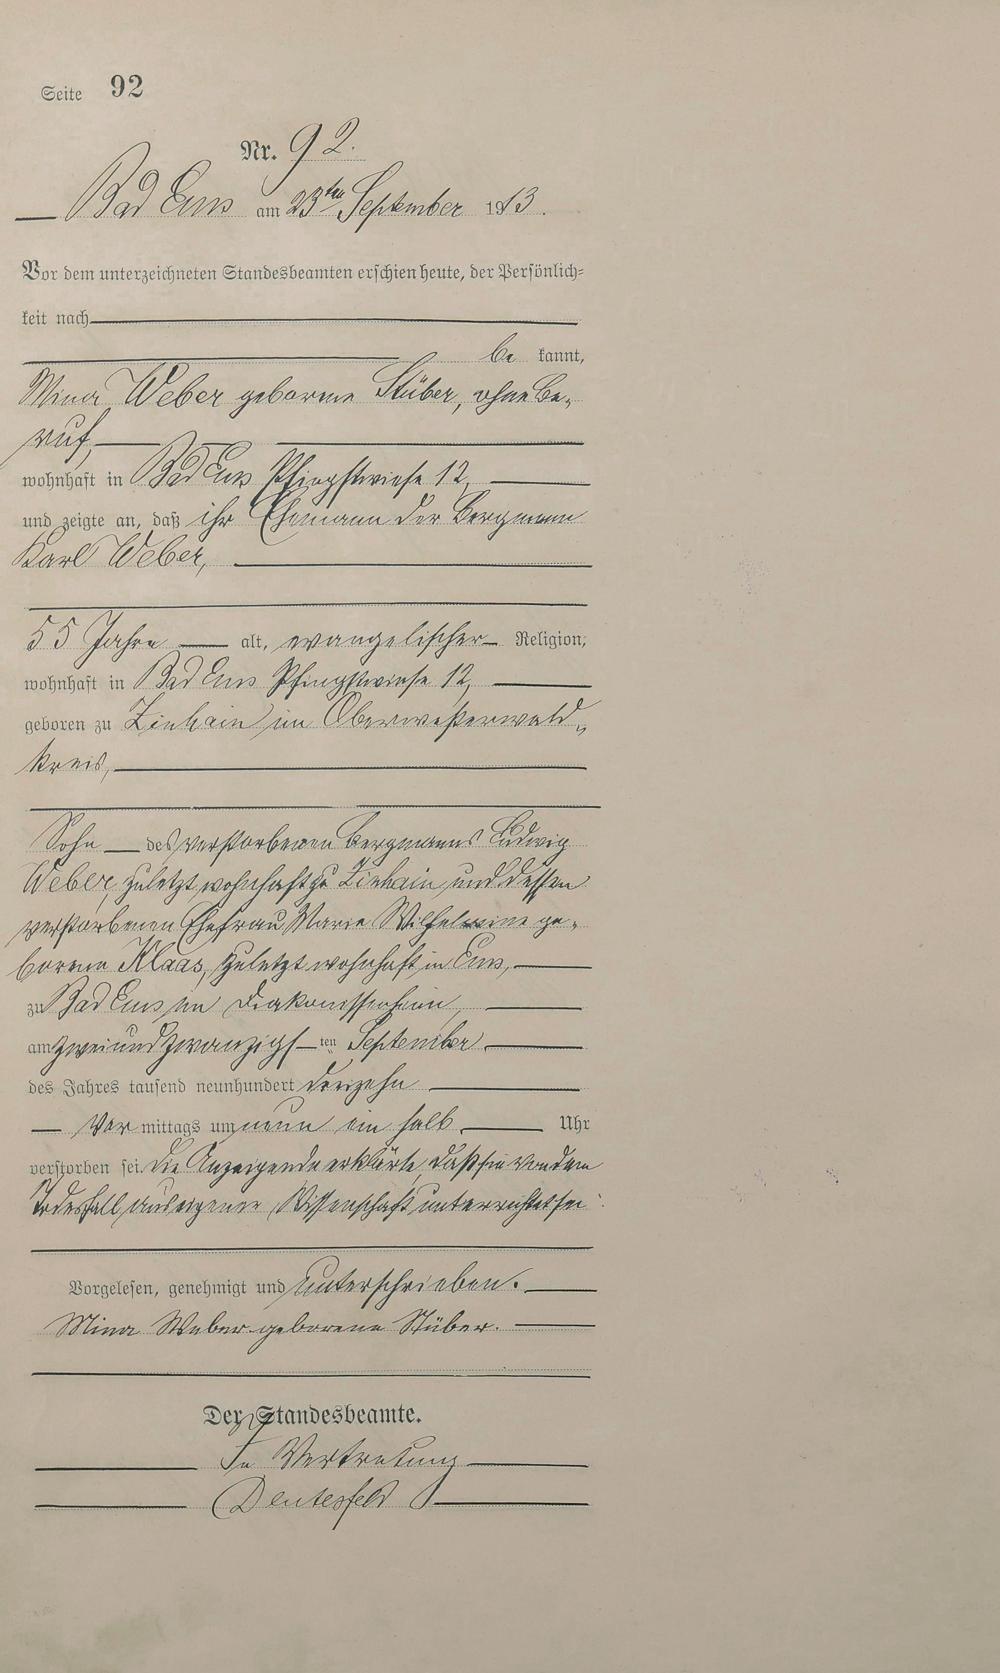 Seite 92
Nr. 92.
Bad Ems am 23ten September 1913.
Vor dem unterzeichneten Standesbeamten erschien heute, der Persönlich=
keit nach
be kannt,
Mina Weber geborene Stüber, ohne Be-
ruf,
wohnhaft in Bad Ems Pfingstwiese 12,
und zeigte an, daß ihr Ehemann der Bergmann
Karl Weber,
55 Jahre alt, evangelischer Religion,
wohnhaft in Bad Ems Pfingstwiese 12,
geboren zu Zinhain im Oberwesterwald-
kreis,
Sohn des verstorbenen Bergmanns Ludwig
Weber, zuletzt wohnhaft zu Zinhain und dessen
verstorbenen Ehefrau Marie Wilhelmine ge-
borene Klaas, zuletzt wohnhaft in Ems,
zu Bad Ems im Diakonissenheim,
am zweiundzwanzigsten September
des Jahres tausend neunhundert dreizehn
Vor mittags um neun ein halb Uhr
verstorben sei. Die Anzeigende erklärte, daß sie von dem
Todesfall aus eigener Wissenschaft unterrichtet sei.
Vorgelesen, genehmigt und unterschrieben.
Mina Weber geborene Stüber.
Der Standesbeamte.
In Vertretung